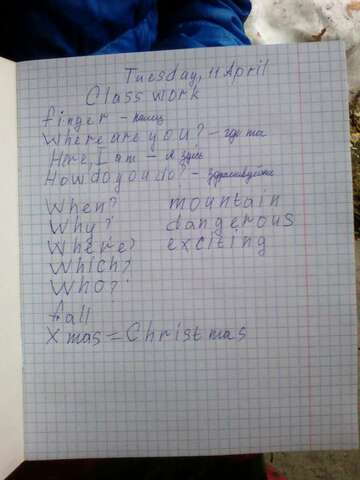 Tuesday, 11 April
Class work
finger - палец
Where are you? - где ты
Here, I am - я здесь
How do you do? - здравствуйте
When? mountain
Why? dangerous
Where? exciting
Which?
Who?
fall
Xmas = Christmas